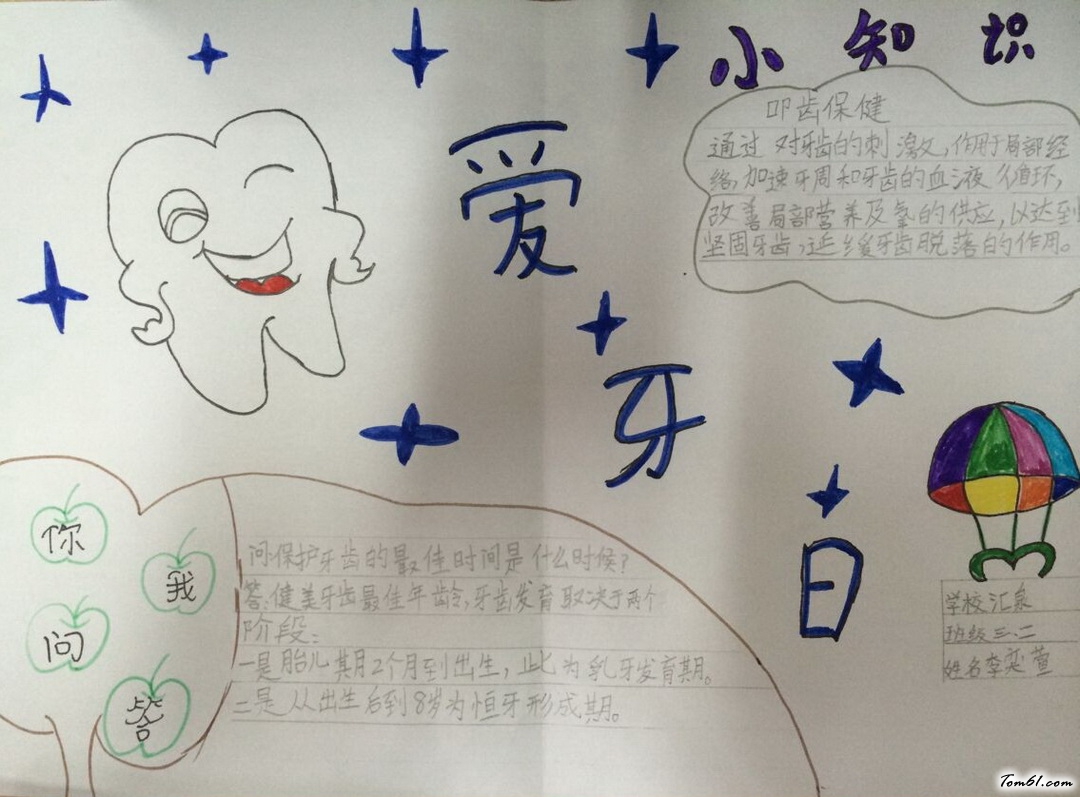 小知识
叩齿保健
通过对牙齿的刺激,作用于局部经
络,加速牙周和牙齿的血液循环,
改善局部营养及氢的供应,以达到
坚固牙齿,延缓牙齿脱落的作用。
爱
牙
日
你
我
问
答
问:保护牙齿的最佳时间是什么时候?
答:健美牙齿最佳年龄,牙齿发育取决于两个
阶段:
一是胎儿其月2个月到出生,此为乳牙发育期。
二是从出生后到8岁为恒牙形成期。
学校汇泉
班级三.二
姓名李奕萱
Tom61.com